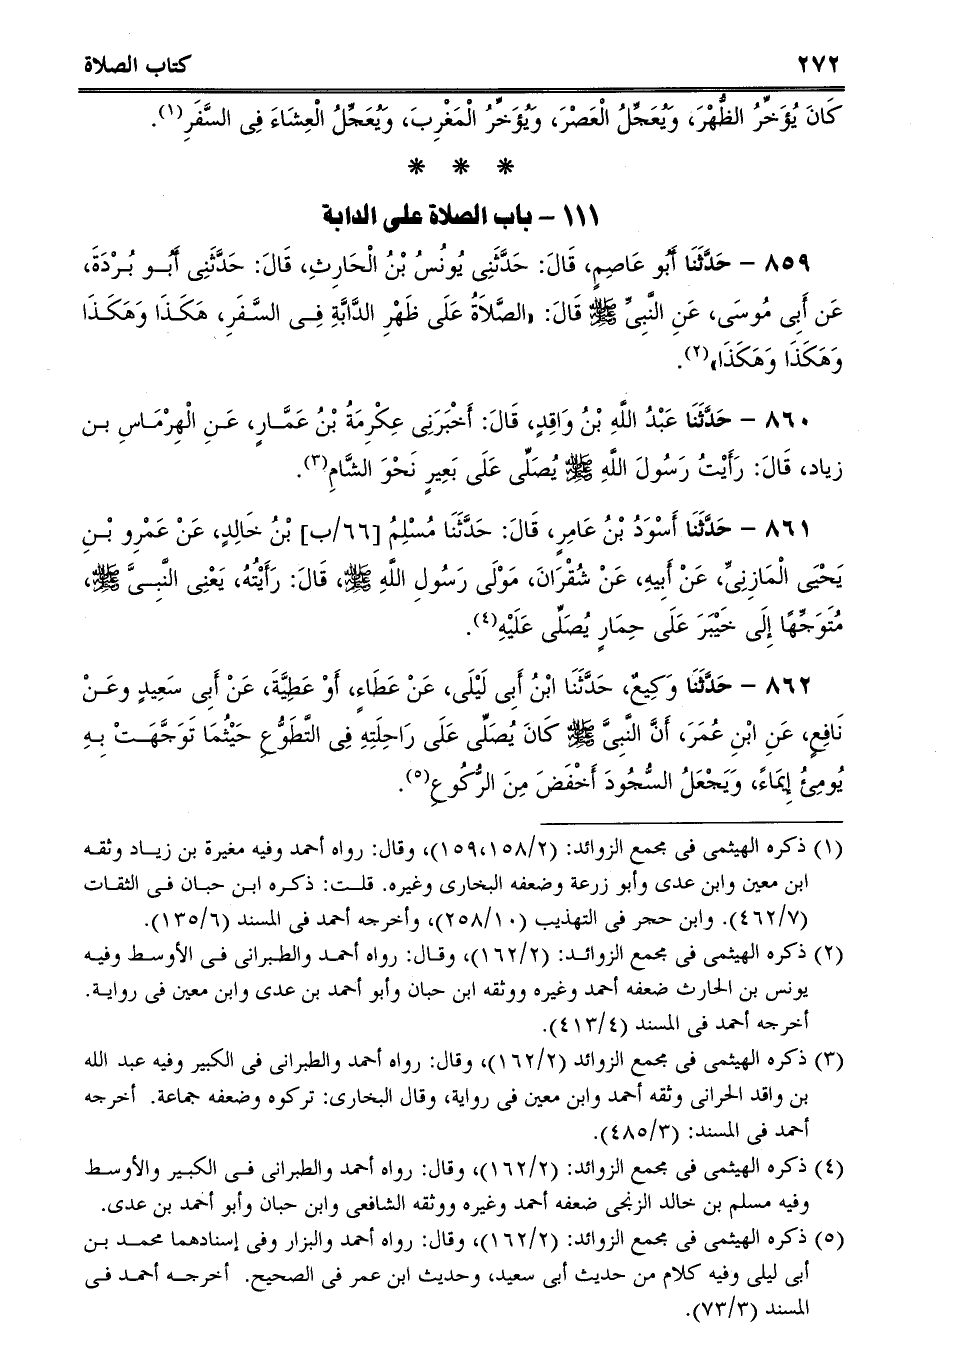 ٢٧٢ كتاب الصلاة
كَانَ يُؤَخِّرُ الظُّهْرَ، وَيُعَجِّلُ الْعَصْرَ، وَيُؤَخِّرُ الْمَغْرِبَ، وَيُعَجِّلُ الْعِشَاءَ فِى السَّفَرِ(١).
* * *
١١١ - باب الصلاة على الدابة
٨٥٩ - حَدَّثَنَا أَبُو عَاصِمٍ، قَالَ: حَدَّثَنِى يُونُسُ بْنُ الْحَارِثِ، قَالَ: حَدَّثَنِى أَبُو بُرْدَةَ،
عَن أَبِى مُوسَى، عَنِ النَّبِىِّ ﷺ قَالَ: «الصَّلاَةُ عَلَى ظَهْرِ الدَّابَّةِ فِى السَّفَرِ، هَكَذَا وَهَكَذَا
وَهَكَذَا وَهَكَذَا»(٢).
٨٦٠ - حَدَّثَنَا عَبْدُ اللَّهِ بْنُ وَاقِدٍ، قَالَ: أَخْبَرَنِى عِكْرِمَةُ بْنُ عَمَّارٍ، عَنِ الْهِرْمَاسِ بن
زياد، قَالَ: رَأَيْتُ رَسُولَ اللَّهِ ﷺ يُصَلِّى عَلَى بَعِيرٍ نَحْوَ الشَّامِ(٣).
٨٦١ - حَدَّثَنَا أَسْوَدُ بْنُ عَامِرٍ، قَالَ: حَدَّثَنَا مُسْلِمُ [٦٦/ب] بْنُ خَالِدٍ، عَنْ عَمْرِو بْنِ
يَحْيَى الْمَازِنِىِّ، عَنْ أَبِيهِ، عَنْ شُقْرَانَ، مَوْلَى رَسُولِ اللَّهِ ﷺ، قَالَ: رَأَيْتُهُ، يَعْنِى النَّبِىَّ ﷺ،
مُتَوَجِّهًا إِلَى خَيْبَرَ عَلَى حِمَارٍ يُصَلِّى عَلَيْهِ(٤).
٨٦٢ - حَدَّثَنَا وَكِيعٌ، حَدَّثَنَا ابْنُ أَبِى لَيْلَى، عَنْ عَطَاءٍ، أَوْ عَطِيَّةَ، عَنْ أَبِى سَعِيدٍ وعَنْ
نَافِعٍ، عَنِ ابْنِ عُمَرَ، أَنَّ النَّبِىَّ ﷺ كَانَ يُصَلِّى عَلَى رَاحِلَتِهِ فِى التَّطَوُّعِ حَيْثُمَا تَوَجَّهَتْ بِهِ
يُومِئُ إِيمَاءً، وَيَجْعَلُ السُّجُودَ أَخْفَضَ مِنَ الرُّكُوعِ(٥).
(١) ذكره الهيثمى فى مجمع الزوائد: (١٥٩،١٥٨/٢)، وقال: رواه أحمد وفيه مغيرة بن زياد وثقه
ابن معين وابن عدى وأبو زرعة وضعفه البخارى وغيره. قلت: ذكره ابن حبان فى الثقات
(٤٦٢/٧). وابن حجر فى التهذيب (٢٥٨/١٠)، وأخرجه أحمد فى المسند (١٣٥/٦).
(٢) ذكره الهيثمى فى مجمع الزوائد: (١٦٢/٢)، وقال: رواه أحمد والطبرانى فى الأوسط وفيه
يونس بن الحارث ضعفه أحمد وغيره ووثقه ابن حبان وأبو أحمد بن عدى وابن معين فى رواية.
أخرجه أحمد فى المسند (٤١٣/٤).
(٣) ذكره الهيثمى فى مجمع الزوائد (١٦٢/٢)، وقال: رواه أحمد والطبرانى فى الكبير وفيه عبد الله
بن واقد الحرانى وثقه أحمد وابن معين فى رواية، وقال البخارى: تركوه وضعفه جماعة. أخرجه
أحمد فى المسند: (٤٨٥/٣).
(٤) ذكره الهيثمى فى مجمع الزوائد: (١٦٢/٢)، وقال: رواه أحمد والطبرانى فى الكبير والأوسط
وفيه مسلم بن خالد الزنجى ضعفه أحمد وغيره ووثقه الشافعى وابن حبان وأبو أحمد بن عدى.
(٥) ذكره الهيثمى فى مجمع الزوائد: (١٦٢/٢)، وقال: رواه أحمد والبزار وفى إسنادهما محمد بن
أبى ليلى وفيه كلام من حديث أبى سعيد، وحديث ابن عمر فى الصحيح. أخرجه أحمد فى
المسند (٧٣/٣).